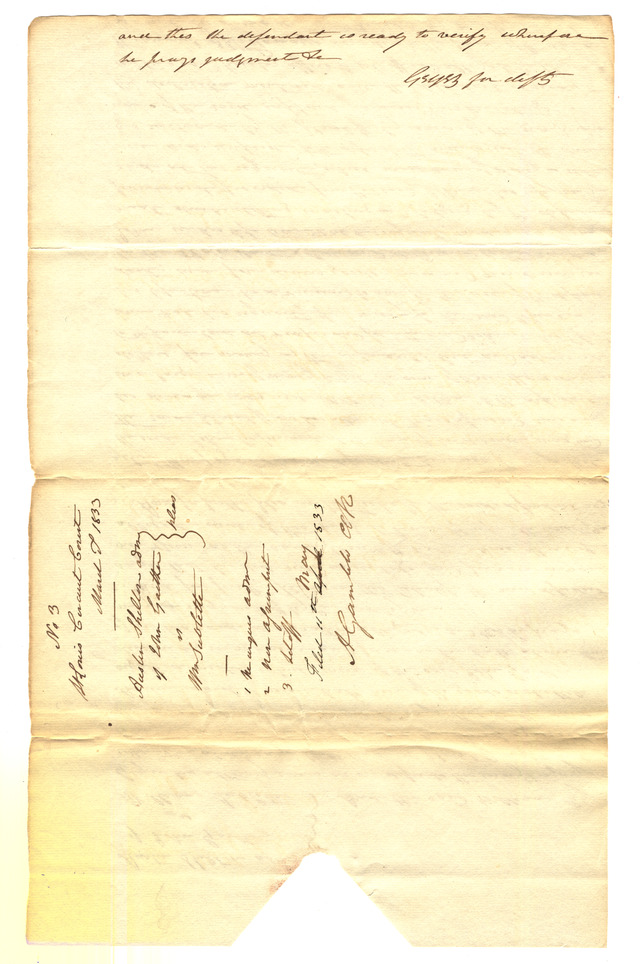 and this the defendant is ready to verify wherefore
he prays judgment &c
Geyer for deft
No 3
St Louis Circuit Court
March T 1833
adm
of Wm
pleas
vs
Wm Sublette
1 Ne unques admr
2 Non assumpsit
3. Setoff
Filed 11th April May 1833
A Gamble Clk